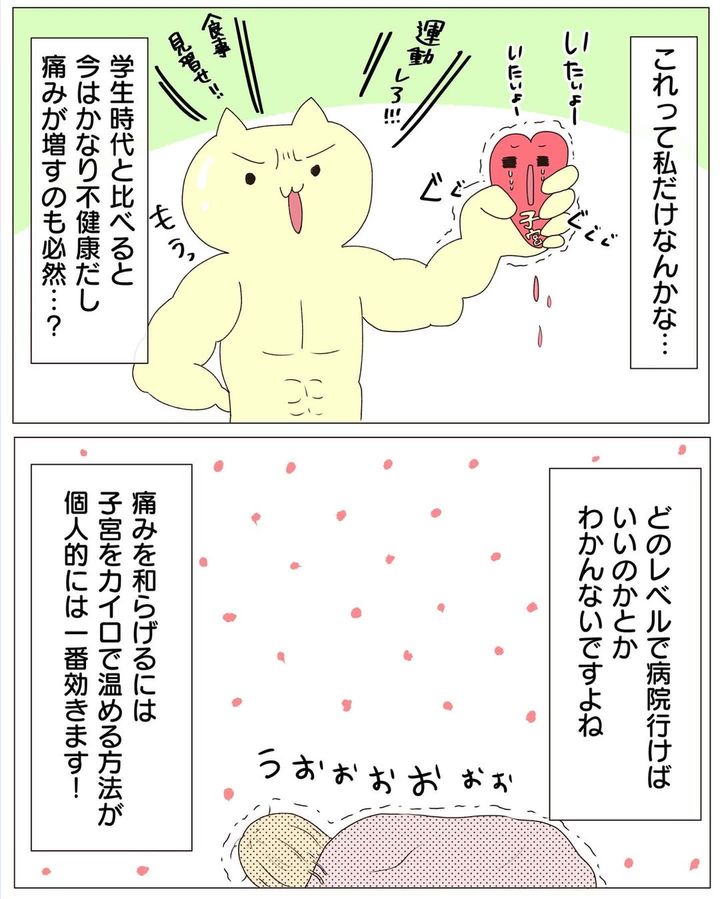 これって私だけなんかな…
いたいよー
いたいよー
運動しろ!!!
食事
見直せ!!
子宮
ぐぐぐ
ぐぐぐ
もうっ
学生時代と比べると
今はかなり不健康だし
痛みが増すのも必然…?
どのレベルで病院行けば
いいのかとか
わかんないですよね
うぉぉぉぉぉぉ
痛みを和らげるには
子宮をカイロで温める方法が
個人的には一番効きます!